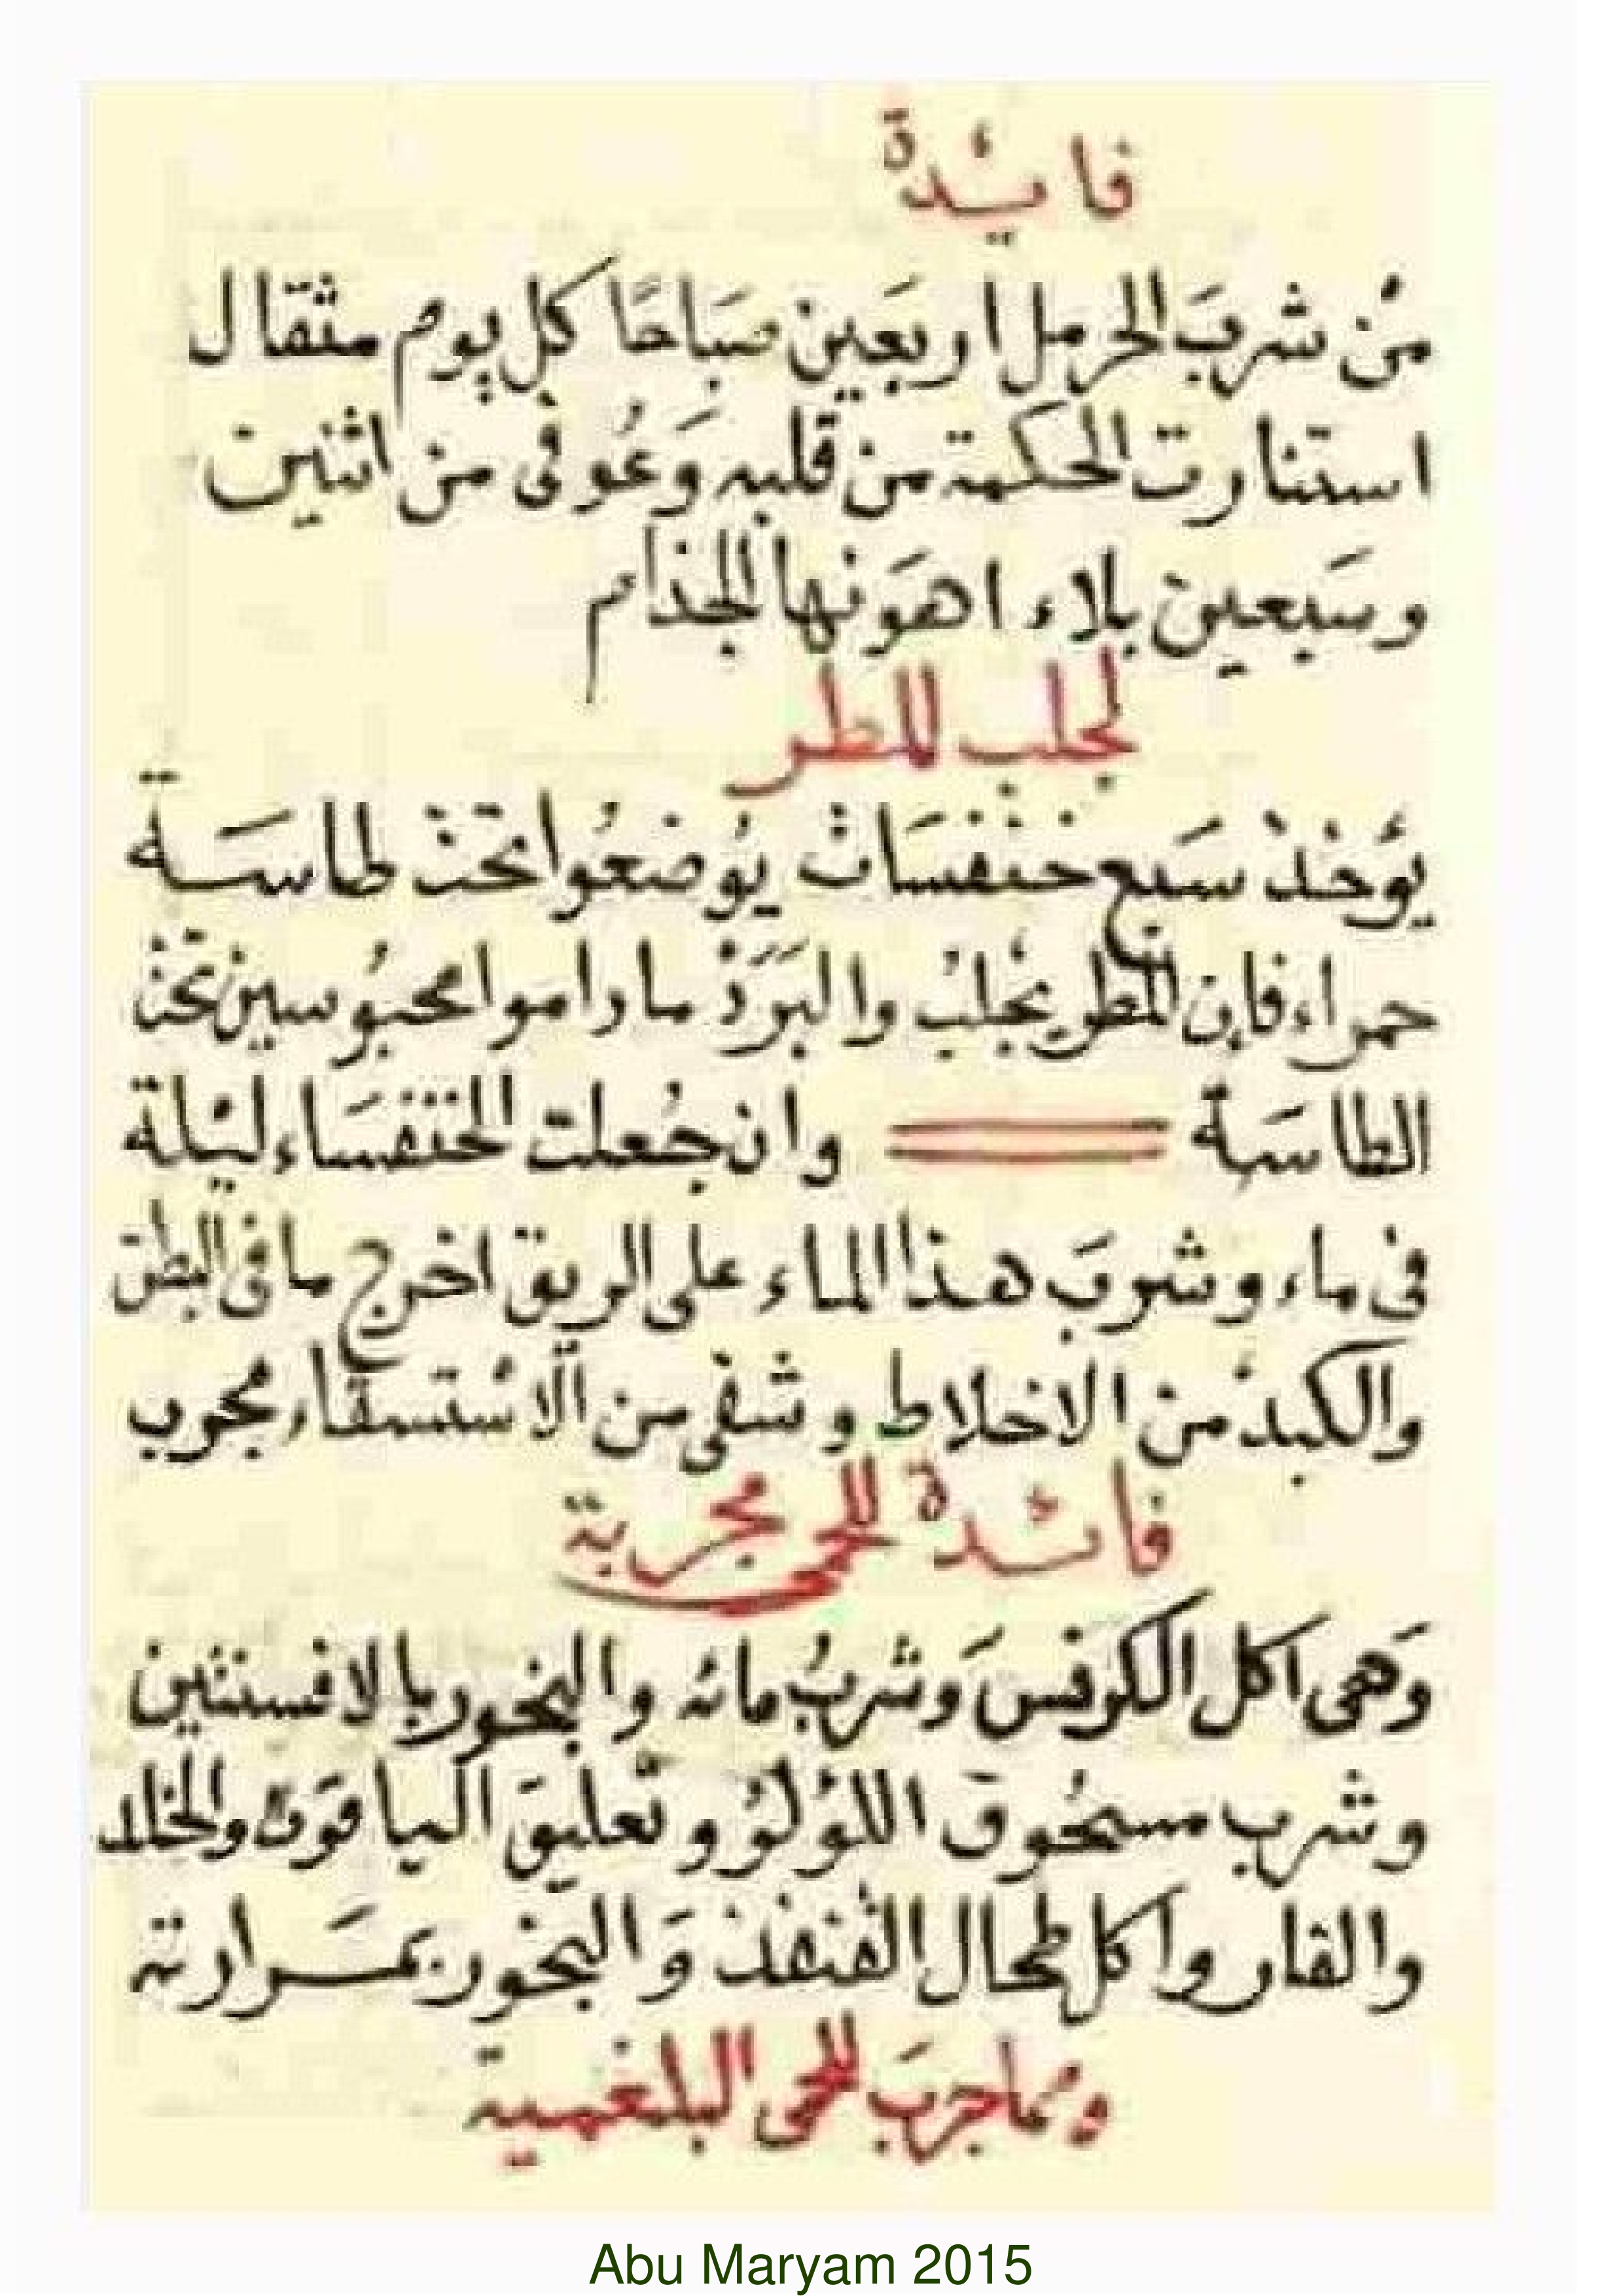 فائيدة
من شربَ الحرمل اربَعين صبَاحًا كل يوم مثقال
استنارت الحكمة من قلبه وَعُوفى من اثنين
وسَبعين بلاء اهوَنها الجذام
لجلب المطر
يؤخذ سَبع خنفسَات يوُضعُوا تحت طاسَة
حمراء فإن المطر يجلبُ والبَرَدْ ما داموا محبُوسين تحت
الطاسَة وان جُعلت الخنفسَاء ليْلة
فى ماء وشربَ هذا الماء على الريق اخرج ما فى البطن
والكبد من الاخلاط وشفى من الاسْتسقاء مجرب
فائدة للحمى مجربة
وَهى اكل الكرفسَ وَشربُ مائه والبخور بالافسنتين
وشرب مسحُوق اللؤلؤ وتعليق الياقوت والخلد
والفار واكل طحال القنفذ وَالبخور بمَرارته
ومما جربَ للحمى البلغمية
Abu Maryam 2015